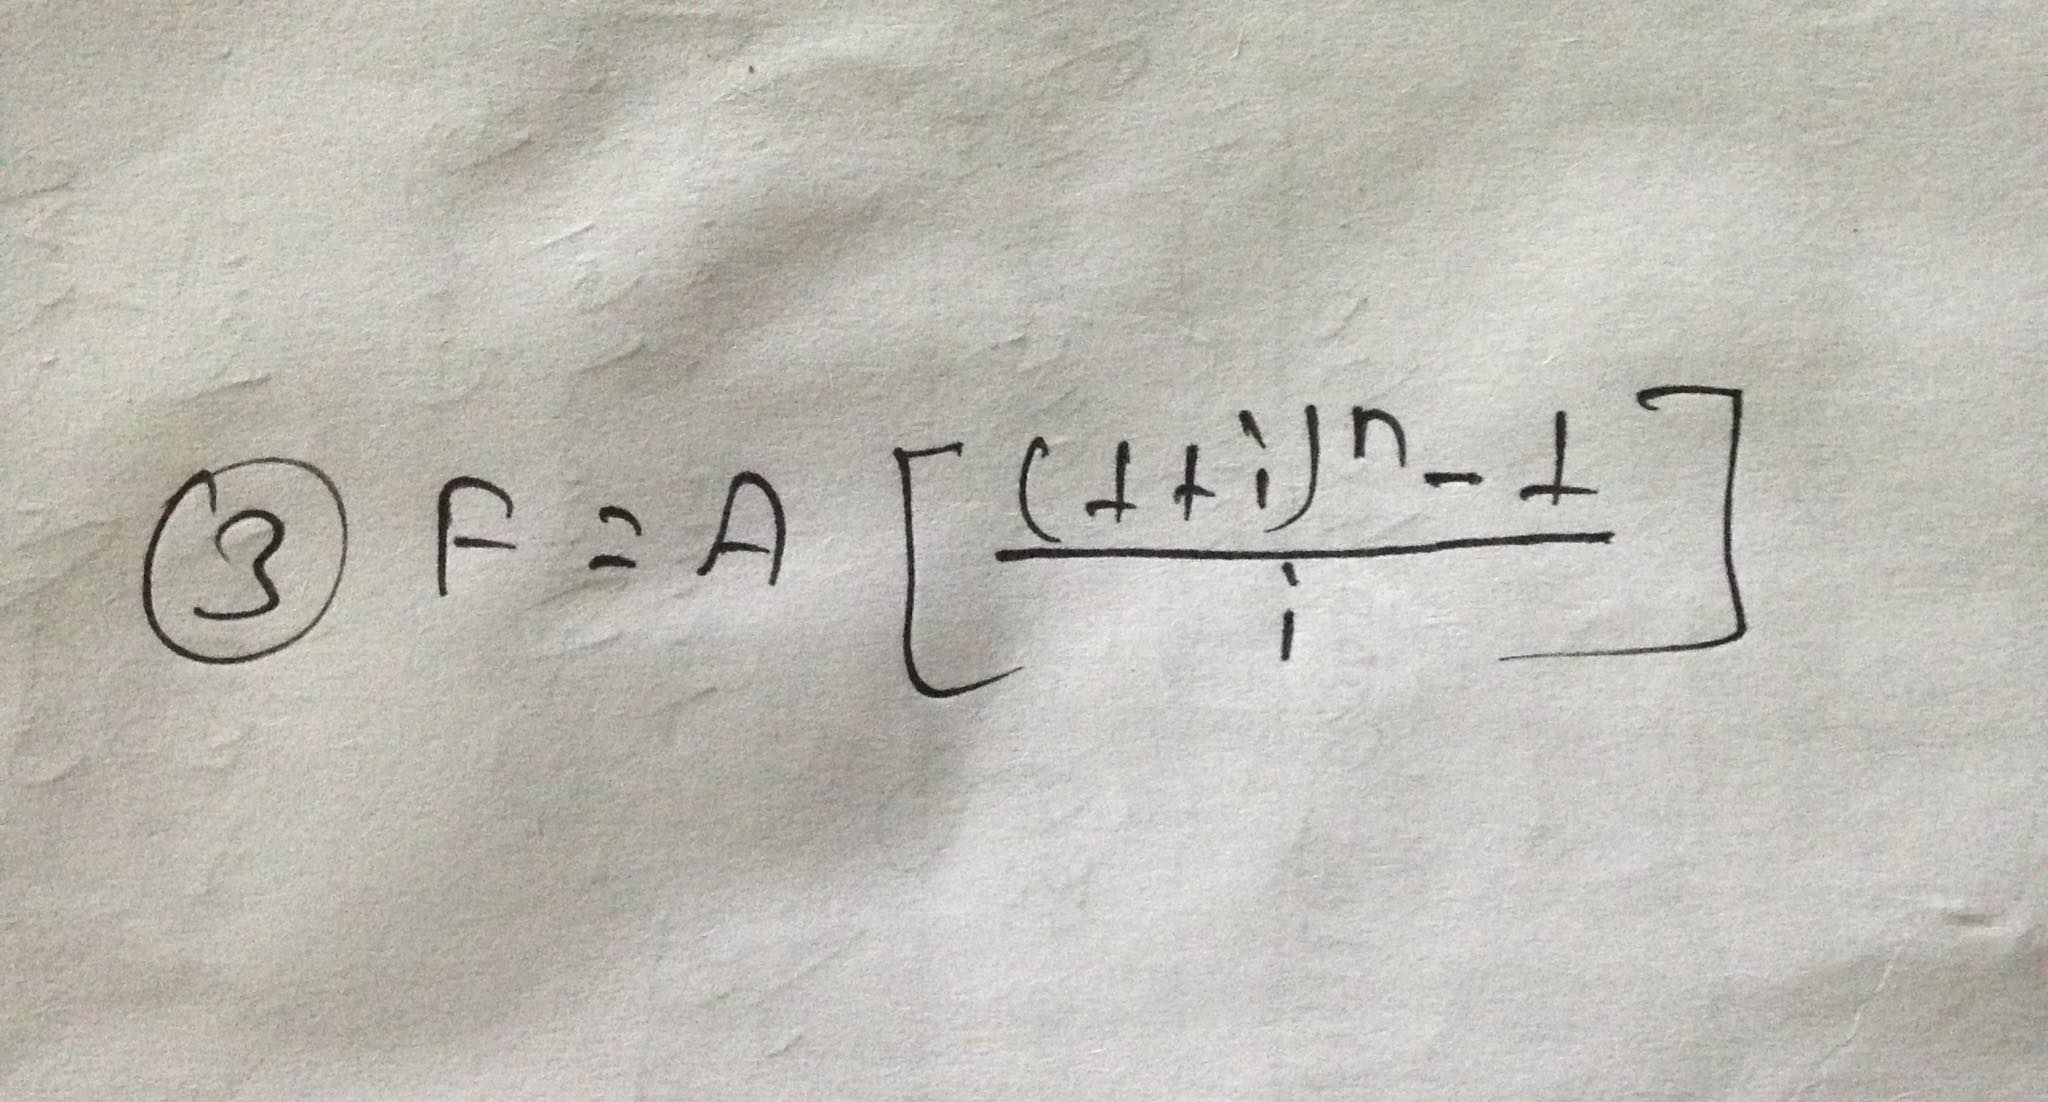 ③ F = A [ ((1+i)ⁿ - 1) / i ]